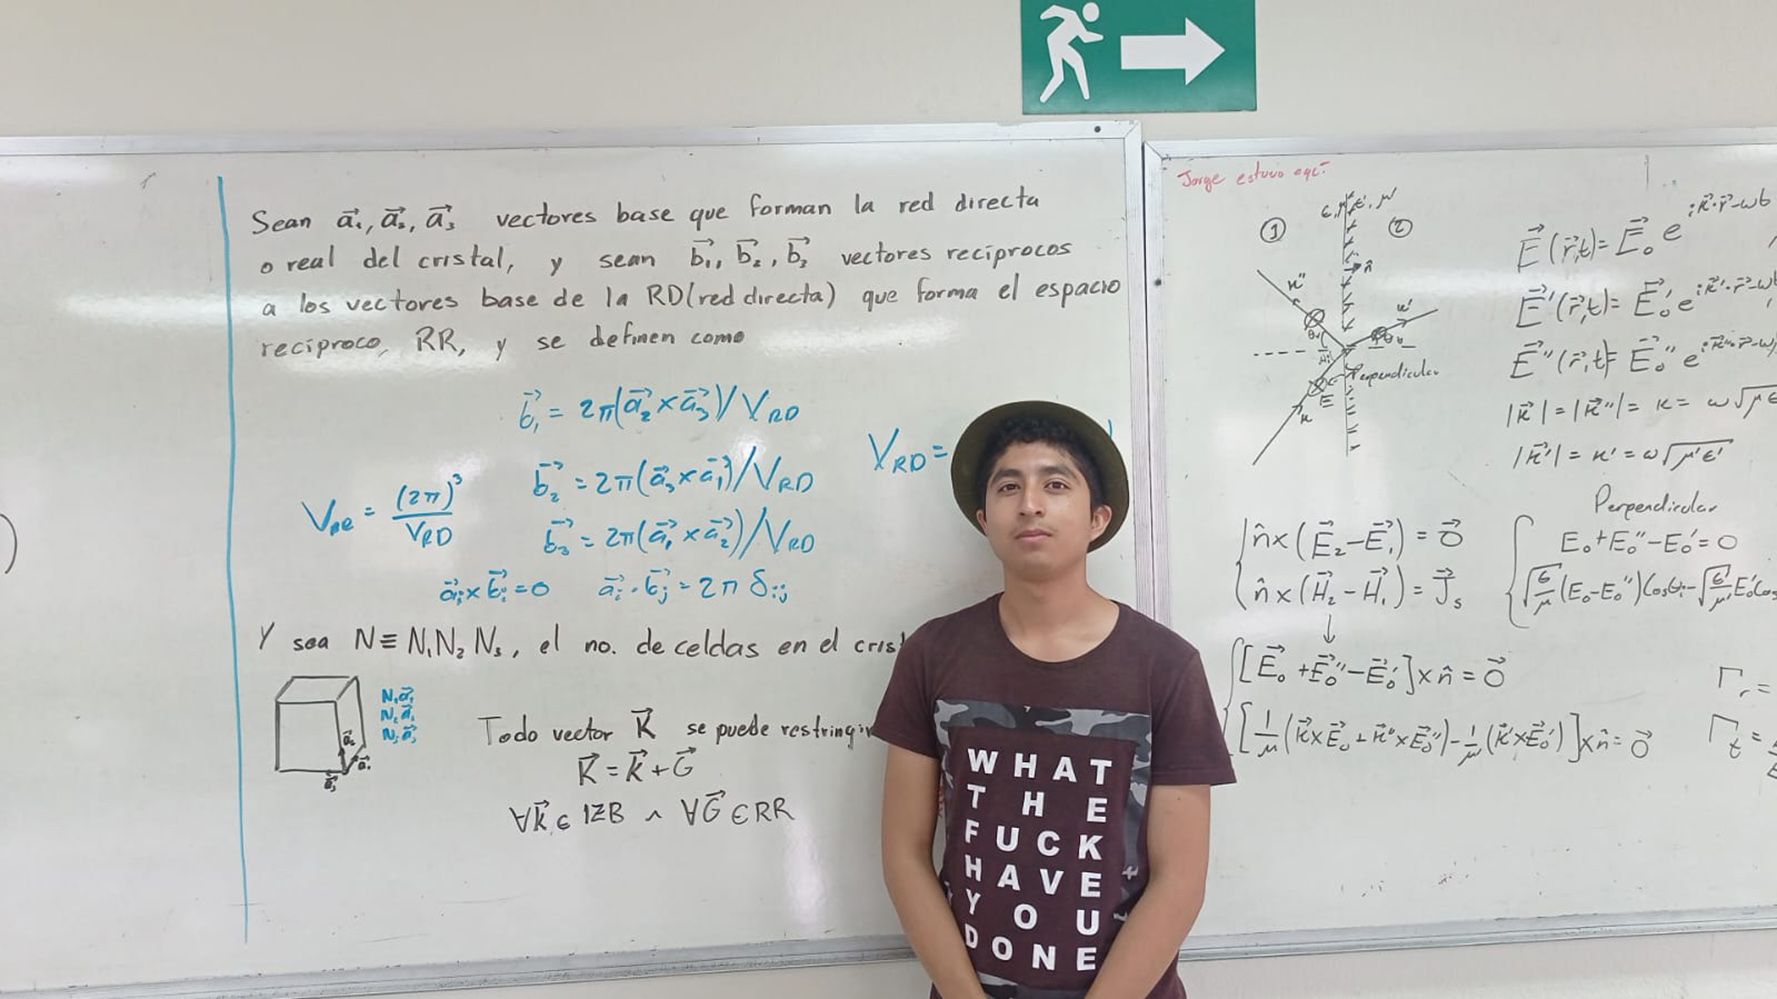 Sean a⃗₁, a⃗₂, a⃗₃ vectores base que forman la red directa
o real del cristal, y sean b⃗₁, b⃗₂, b⃗₃ vectores recíprocos
a los vectores base de la RD(red directa) que forma el espacio
recíproco, RR, y se definen como
b⃗₁ = 2π(a⃗₂ × a⃗₃)/V_RD
V_RD =
b⃗₂ = 2π(a⃗₃ × a⃗₁)/V_RD
V_RR = (2π)³/V_RD
b⃗₃ = 2π(a⃗₁ × a⃗₂)/V_RD
a⃗ᵢ × b⃗ᵢ = 0 a⃗ᵢ · b⃗ⱼ = 2π δᵢⱼ
Y sea N ≡ N₁N₂N₃, el no. de celdas en el crist
N₁a⃗₁
N₂a⃗₂
N₃a⃗₃
a⃗₂
a⃗₁
a⃗₃
Todo vector K⃗ se puede restringir
K⃗ = k⃗ + G⃗
∀k⃗ ∈ 1ZB ∧ ∀G⃗ ∈ RR
Jorge estuvo aquí
① ②
n̂
Perpendicular
E⃗(r⃗,t) = E⃗₀ e^{iκ⃗·r⃗-ωt
E⃗'(r⃗,t) = E⃗₀' e^{iκ⃗'·r⃗-ωt
E⃗''(r⃗,t) = E⃗₀'' e^{iκ⃗''·r⃗-ω
|κ⃗| = |κ⃗''| = κ = ω√με
|κ⃗'| = κ' = ω√μ'ε'
n̂ × (E⃗₂ - E⃗₁) = 0⃗
n̂ × (H⃗₂ - H⃗₁) = J⃗s
↓
[E⃗₀ + E⃗₀'' - E⃗₀'] × n̂ = 0⃗
[1/μ (κ⃗ × E⃗₀ + κ⃗'' × E⃗₀'') - 1/μ' (κ⃗' × E⃗₀')] × n̂ = 0⃗
Perpendicular
E₀ + E₀'' - E₀' = 0
√(ε/μ) (E₀ - E₀'') Cosθᵢ - √(ε'/μ') E₀' Cos
Γr =
Γt =
WHAT
THE
FUCK
HAVE
YOU
DONE